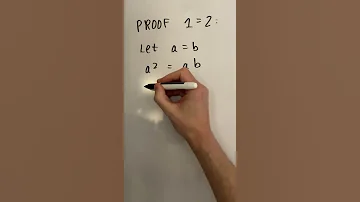 PROOF 1=2:
Let a=b
a² = ab